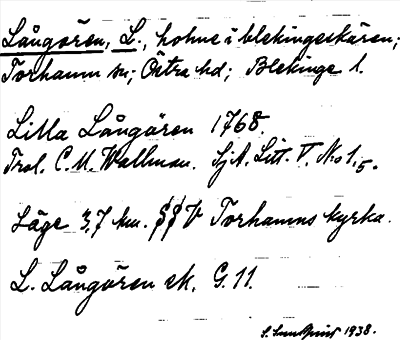 Långören, L., holme i blekingeskären;
Torhamn sn; Östra hd; Blekinge l.
Lilla Långören 1768.
Trol. C. U. Wallman. Sjk. Litt. V. No 1,5.
Läge 3,7 km. V Torhamns kyrka.
L. Långören ek. G. 11.
1938.